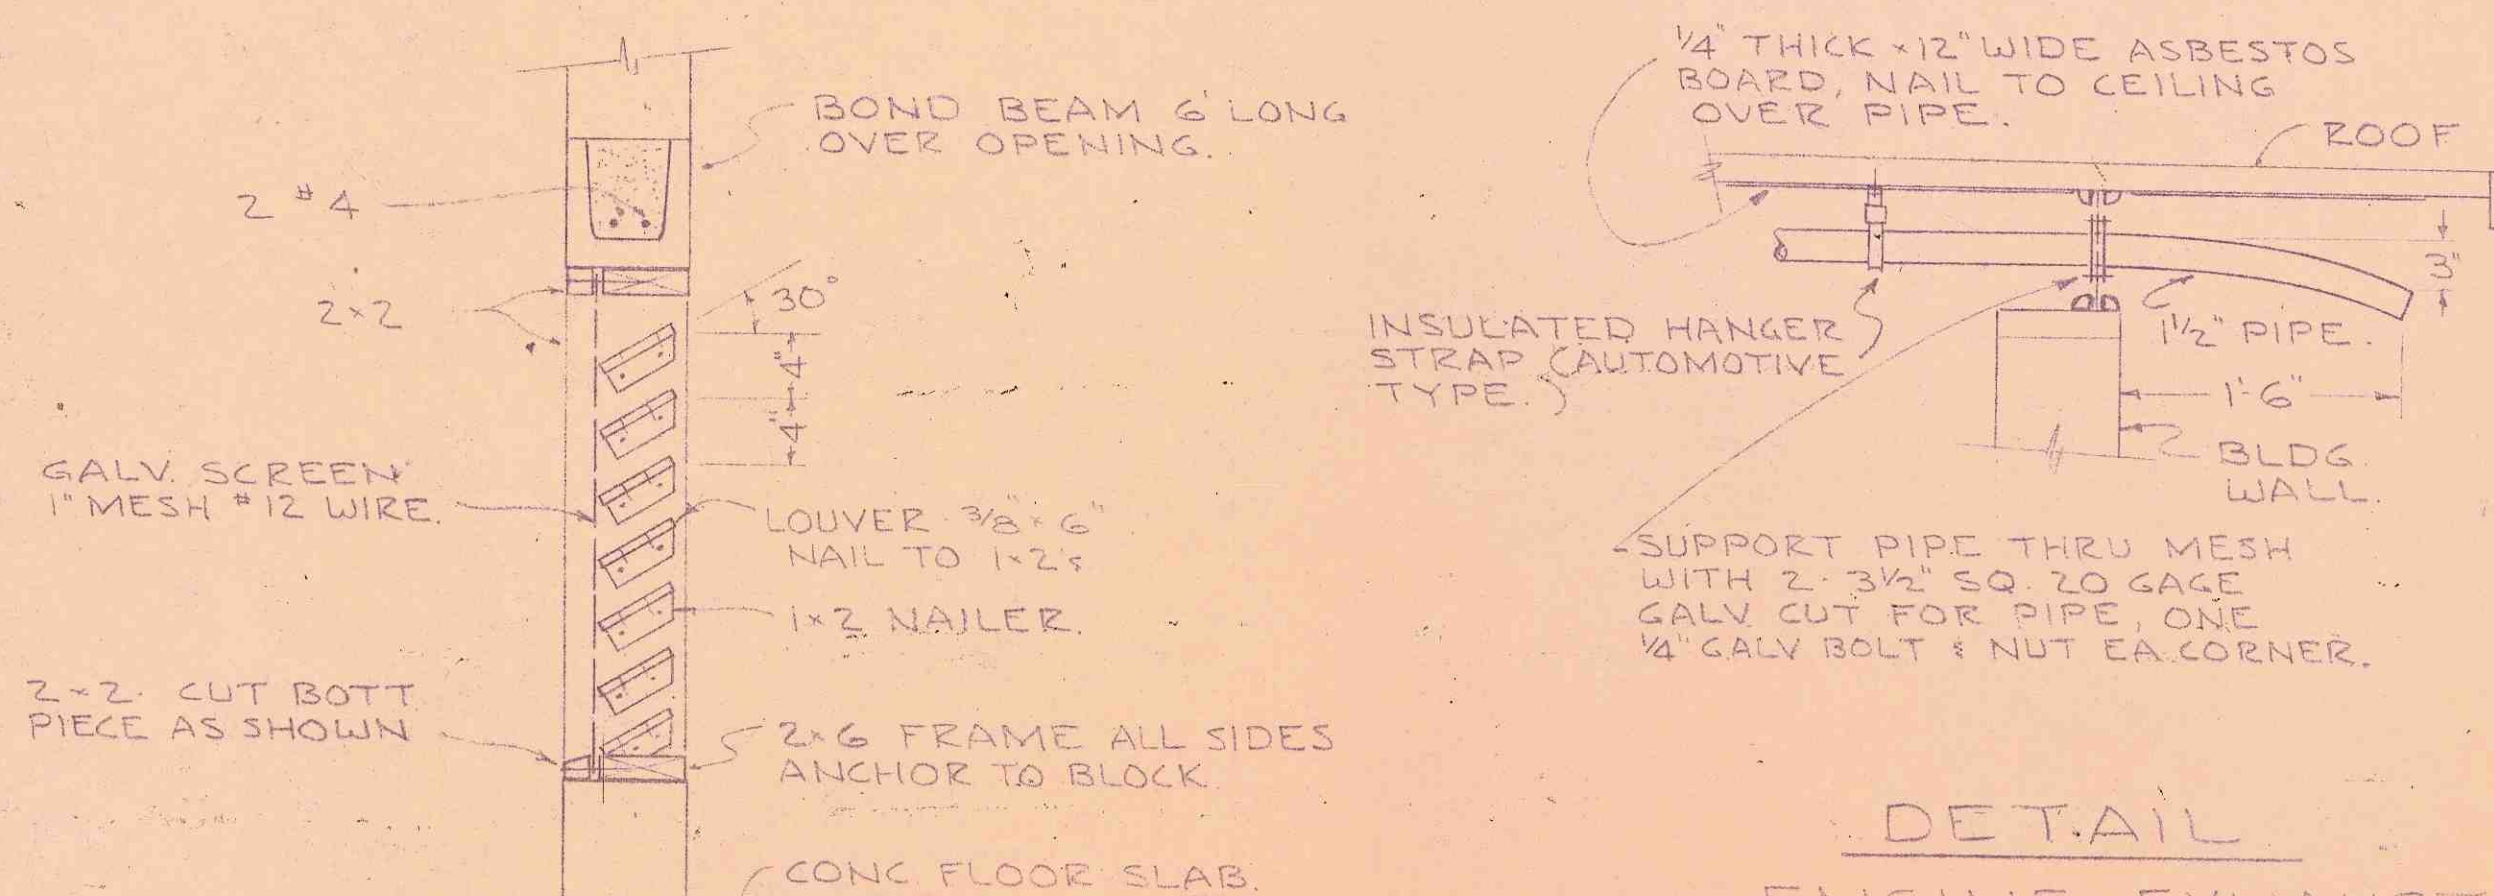 BOND BEAM 6' LONG
OVER OPENING.
2 #4
2×2
30°
4"
4"
GALV. SCREEN
1" MESH #12 WIRE.
LOUVER 3/8 × 6"
NAIL TO 1×2's
1×2 NAILER.
2×2 CUT BOTT
PIECE AS SHOWN
2×6 FRAME ALL SIDES
ANCHOR TO BLOCK
CONC FLOOR SLAB.
1/4" THICK ×12" WIDE ASBESTOS
BOARD, NAIL TO CEILING
OVER PIPE.
ROOF
3"
INSULATED HANGER
STRAP (AUTOMOTIVE
TYPE.)
1 1/2" PIPE.
1'-6"
BLDG.
WALL.
SUPPORT PIPE THRU MESH
WITH 2- 3 1/2" SQ. 20 GAGE
GALV CUT FOR PIPE, ONE
1/4" GALV BOLT & NUT EA. CORNER.
DETAIL
ENGINE EXHAUST